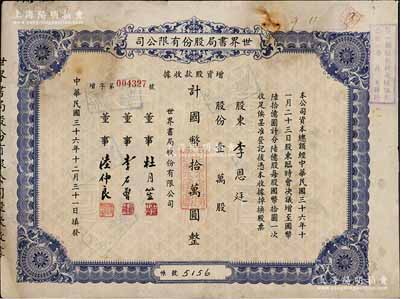 世界書局股份有限公司
增資股款收據
增字第004327號
本公司資本總額經中華民國三十六年十
一月二十三日股東臨時會決議增至國幣
陸拾億圓計分陸億股每股國幣拾圓一次
收足俟呈准登記後憑本收據掉換股票
股東 李恩廷
股份 壹萬股
計國幣拾萬圓整
世界書局股份有限公司
董事 杜月笙
董事 李石曾
董事 陸仲良
中華民國三十六年十二月三十一日填發
帳號 5156